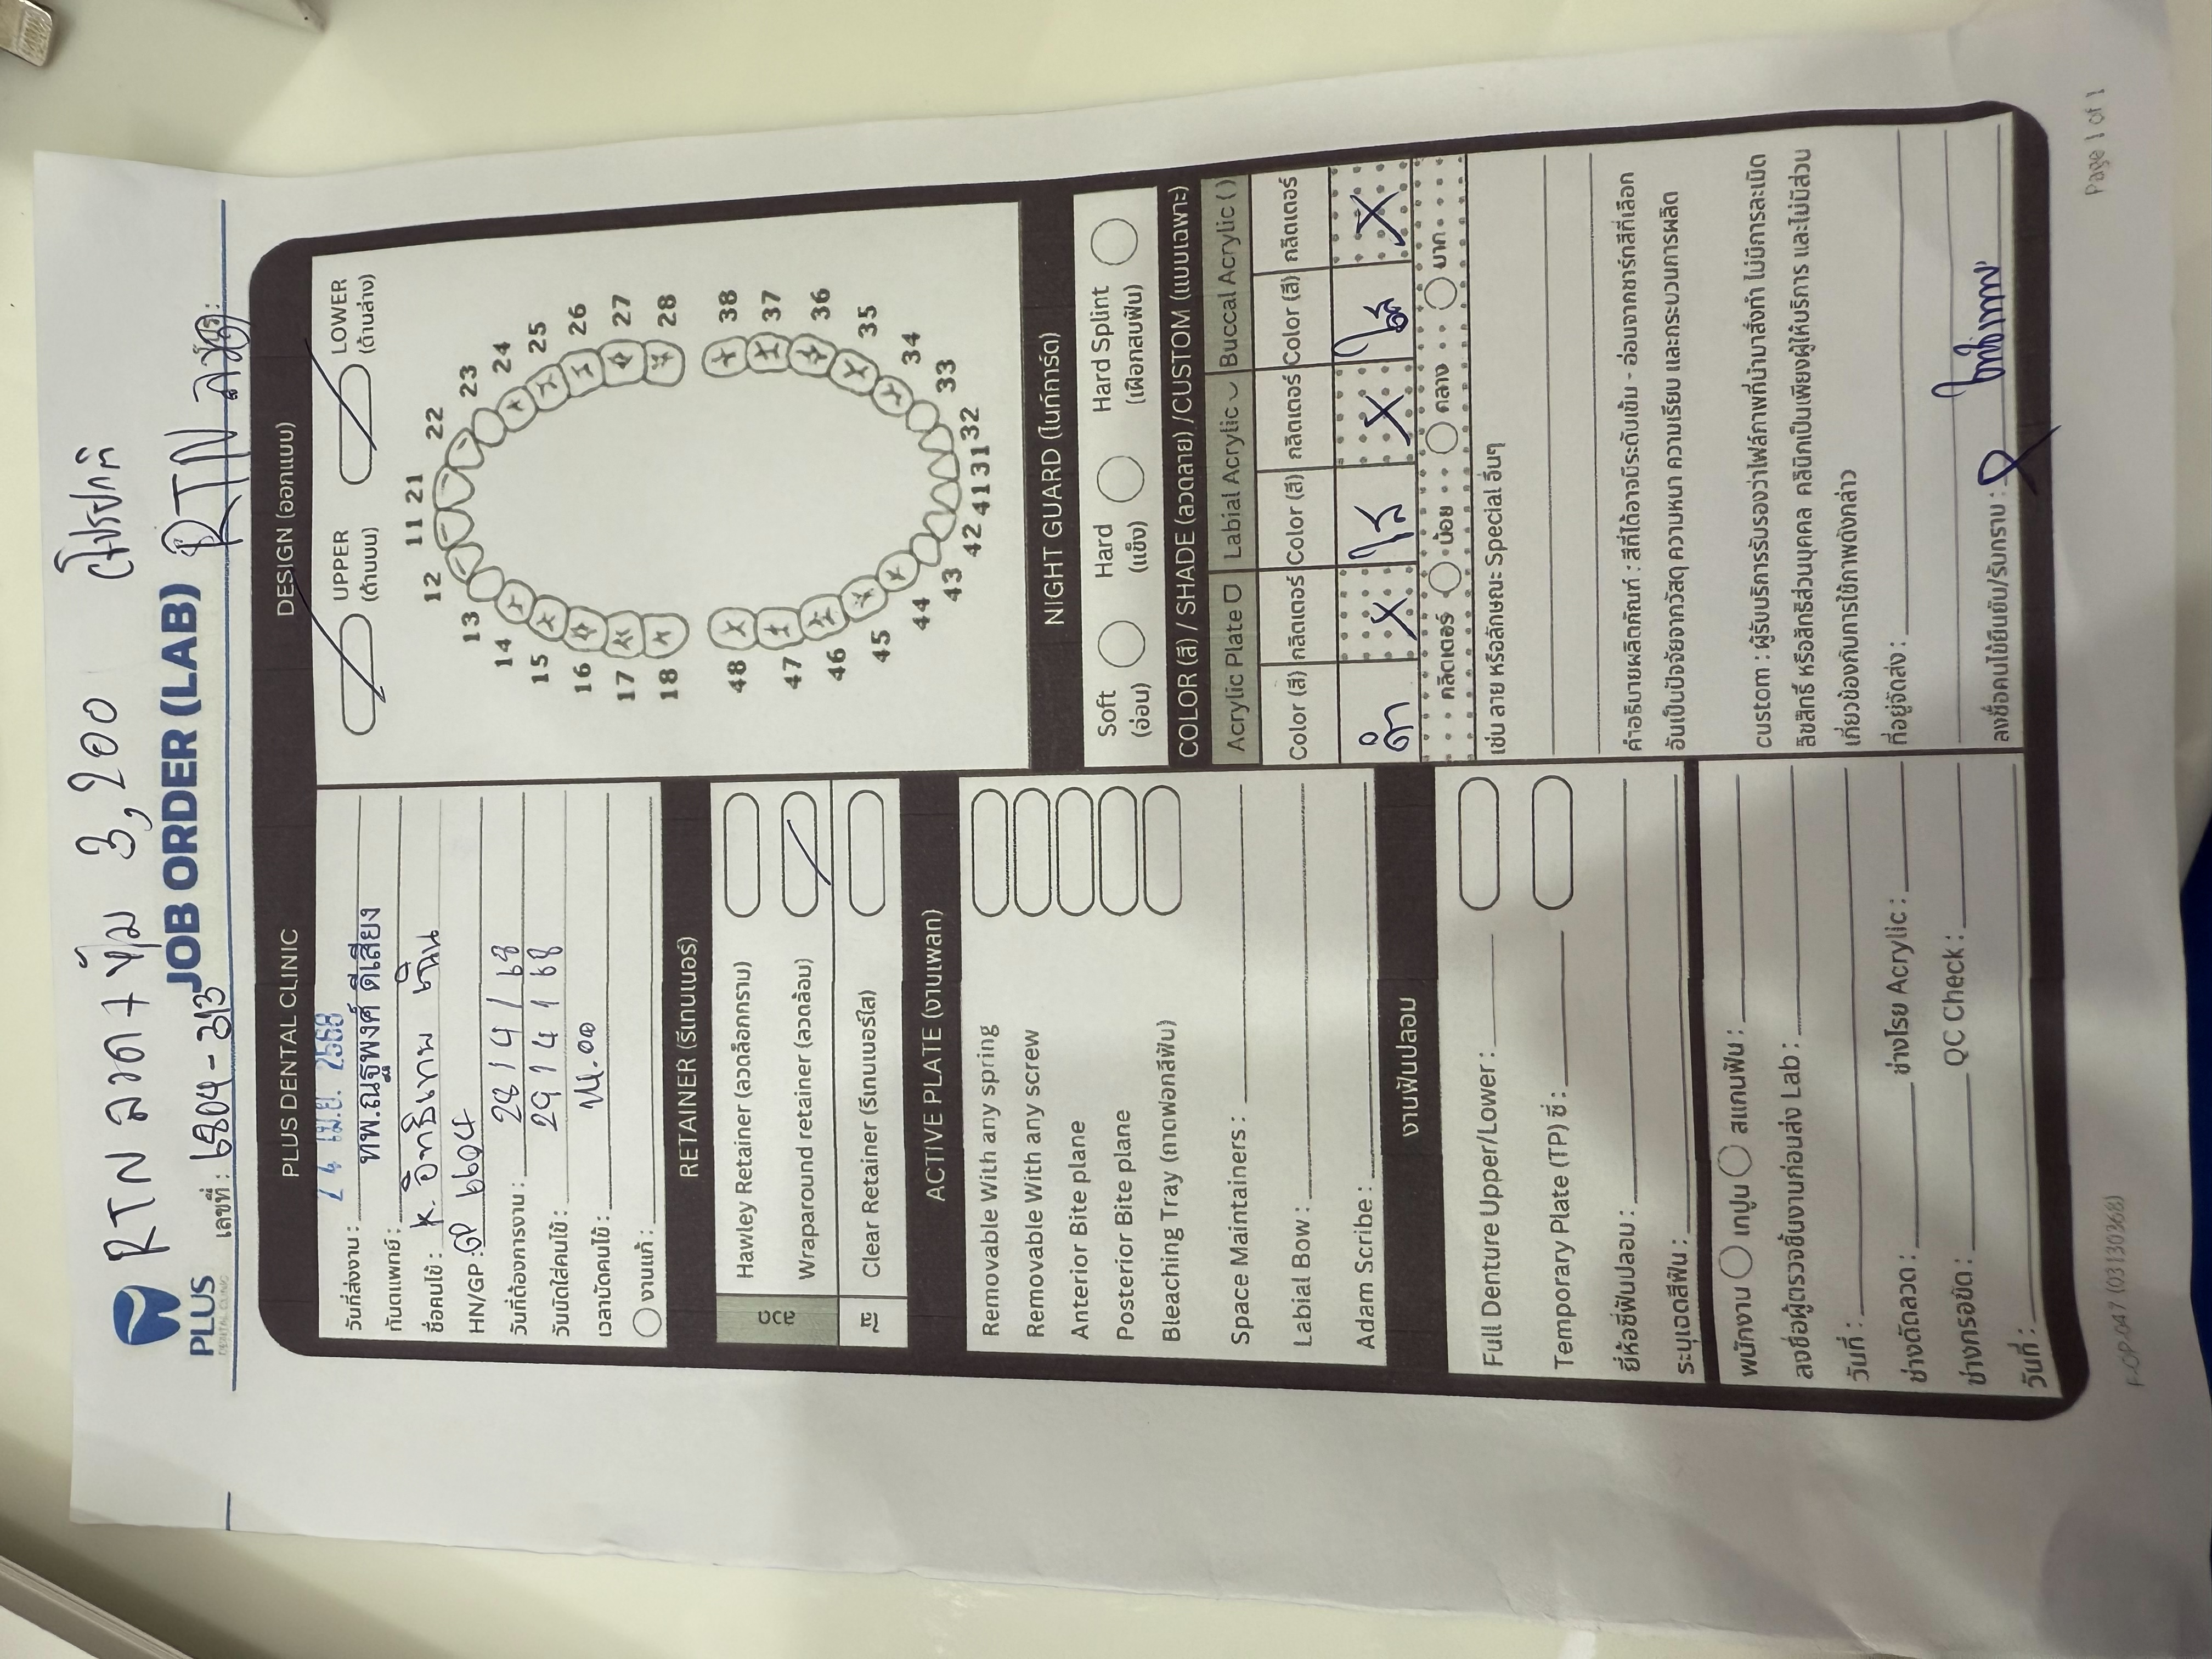 RTN ลวด + หุ้ม 3,200 (โปรปกติ
PLUS
DENTAL CLINIC
JOB ORDER (LAB)
RTN ลวด
เลขที่ : 6804-313
PLUS DENTAL CLINIC
24 เม.ย. 2568
วันที่ส่งงาน :
ทันตแพทย์ : ทพ.ณฐพงศ์ ดีเสียง
ชื่อคนไข้ : K. อิทธิเทพ เฉิน
HN/GP : GP 6604
วันที่ต้องการงาน : 28/4/68
วันนัดใส่คนไข้ : 29/4/68
เวลานัดคนไข้ : 14.00
งานแก้ :
RETAINER (รีเทนเนอร์)
ลวด
Hawley Retainer (ลวดล็อกกราม)
Wraparound retainer (ลวดล้อม)
ใส
Clear Retainer (รีเทนเนอร์ใส)
ACTIVE PLATE (งานเพลท)
Removable With any spring
Removable With any screw
Anterior Bite plane
Posterior Bite plane
Bleaching Tray (ถาดฟอกสีฟัน)
Space Maintainers :
Labial Bow :
Adam Scribe :
งานฟันปลอม
Full Denture Upper/Lower :
Temporary Plate (TP) ซี่ :
ยี่ห้อซี่ฟันปลอม :
ระบุเฉดสีฟัน :
พนักงาน เทปูน สแกนฟัน :
ลงชื่อผู้ตรวจชิ้นงานก่อนส่ง Lab :
วันที่ :
ช่างดัดลวด : ช่างโรย Acrylic :
ช่างกรอขัด : QC Check :
วันที่ :
DESIGN (ออกแบบ)
UPPER LOWER
(ด้านบน) (ด้านล่าง)
11 21
12 22
13 23
14 24
15 25
16 26
17 27
18 28
48 38
47 37
46 36
45 35
44 34
43 33
42 41 31 32
NIGHT GUARD (ไนท์การ์ด)
Soft Hard Hard Splint
(อ่อน) (แข็ง) (เฝือกสบฟัน)
COLOR (สี) / SHADE (ลวดลาย) /CUSTOM (แบบเฉพาะ)
Acrylic Plate Labial Acrylic Buccal Acrylic ( )
Color (สี) กลิตเตอร์ Color (สี) กลิตเตอร์ Color (สี) กลิตเตอร์
ดำ X ใส X ใส X
กลิตเตอร์ น้อย กลาง มาก
เช่น ลาย หรือลักษณะ Special อื่นๆ
คำอธิบายผลิตภัณฑ์ : สีที่ได้อาจมีระดับเข้ม - อ่อนจากชาร์ทสีที่เลือก
อันเป็นปัจจัยจากวัสดุ ความหนา ความเรียบ และกระบวนการผลิต
custom : ผู้รับบริการรับรองว่าไฟล์ภาพที่นำมาสั่งทำ ไม่มีการละเมิด
ลิขสิทธิ์ หรือสิทธิส่วนบุคคล คลินิกเป็นเพียงผู้ให้บริการ และไม่มีส่วน
เกี่ยวข้องกับการใช้ภาพดังกล่าว
ที่อยู่จัดส่ง :
ลงชื่อคนไข้ยืนยัน/รับทราบ : อิทธิเทพ
F-OP-047 (03130368)
Page 1 of 1